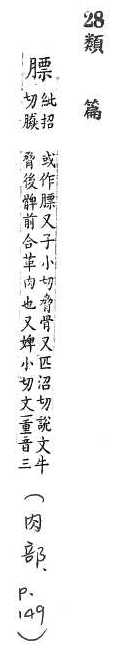 28 類 篇
膘 紕招
切膜
或作膘又子小切脅骨又匹沼切說文牛
脅後髀前合革肉也又婢小切文一重音三
(肉部, p.149)